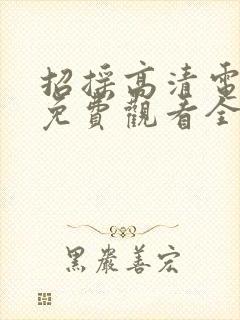 招採高清電
免費觀看全
黑嚴善宏